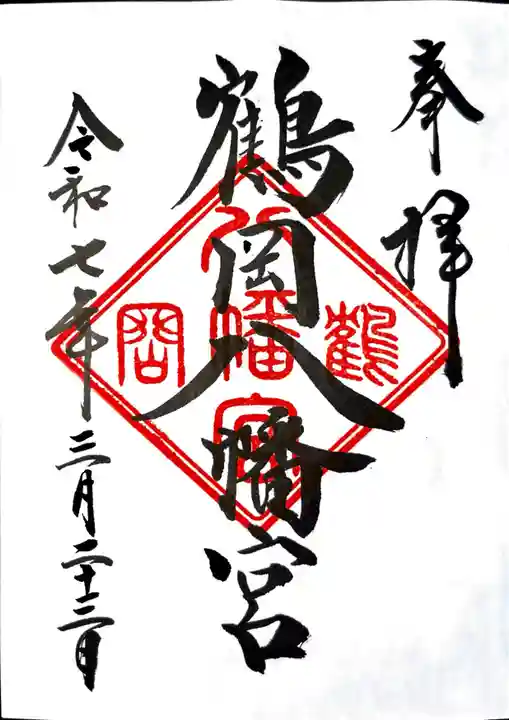 奉拝
鶴岡八幡宮
鶴
岡
八幡宮
令和七年三月二十三日